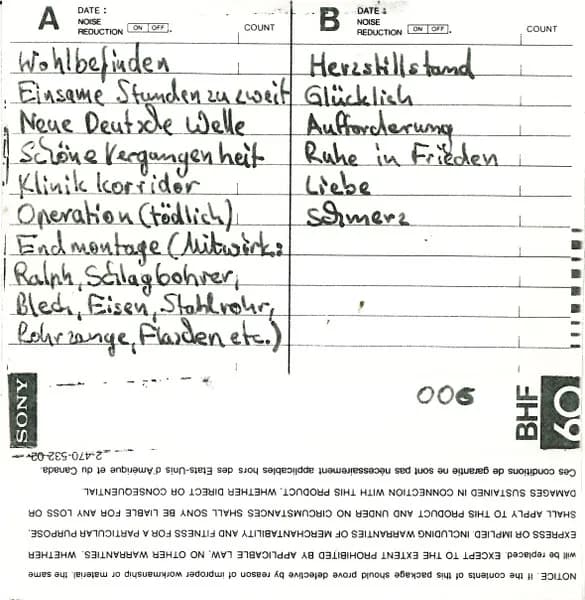 A DATE :
NOISE
REDUCTION ON OFF . COUNT
Wohlbefinden
Einsame Stunden zu zweit
Neue Deutsche Welle
Schöne Vergangenheit
Klinik korridor
Operation (tödlich)
Endmontage (Mitwirk.:
Ralph, Schlagbohrer,
Blech, Eisen, Stahlrohr,
Rohrzange, Flaschen etc.)
B DATE :
NOISE
REDUCTION ON OFF . COUNT
Herzstillstand
Glücklich
Aufforderung
Ruhe in Frieden
Liebe
Schmerz
006
SONY
BHF 60
2-470-532-02
NOTICE. If the contents of this package should prove defective by reason of improper workmanship or material, the same
will be replaced. EXCEPT TO THE EXTENT PROHIBITED BY APPLICABLE LAW, NO OTHER WARRANTIES, WHETHER
EXPRESS OR IMPLIED, INCLUDING WARRANTIES OF MERCHANTABILITY AND FITNESS FOR A PARTICULAR PURPOSE,
SHALL APPLY TO THIS PRODUCT AND UNDER NO CIRCUMSTANCES SHALL SONY BE LIABLE FOR ANY LOSS OR
DAMAGES SUSTAINED IN CONNECTION WITH THIS PRODUCT, WHETHER DIRECT OR CONSEQUENTIAL
Ces conditions de garantie ne sont pas nécessairement applicables hors des Etats-Unis d'Amérique et du Canada.